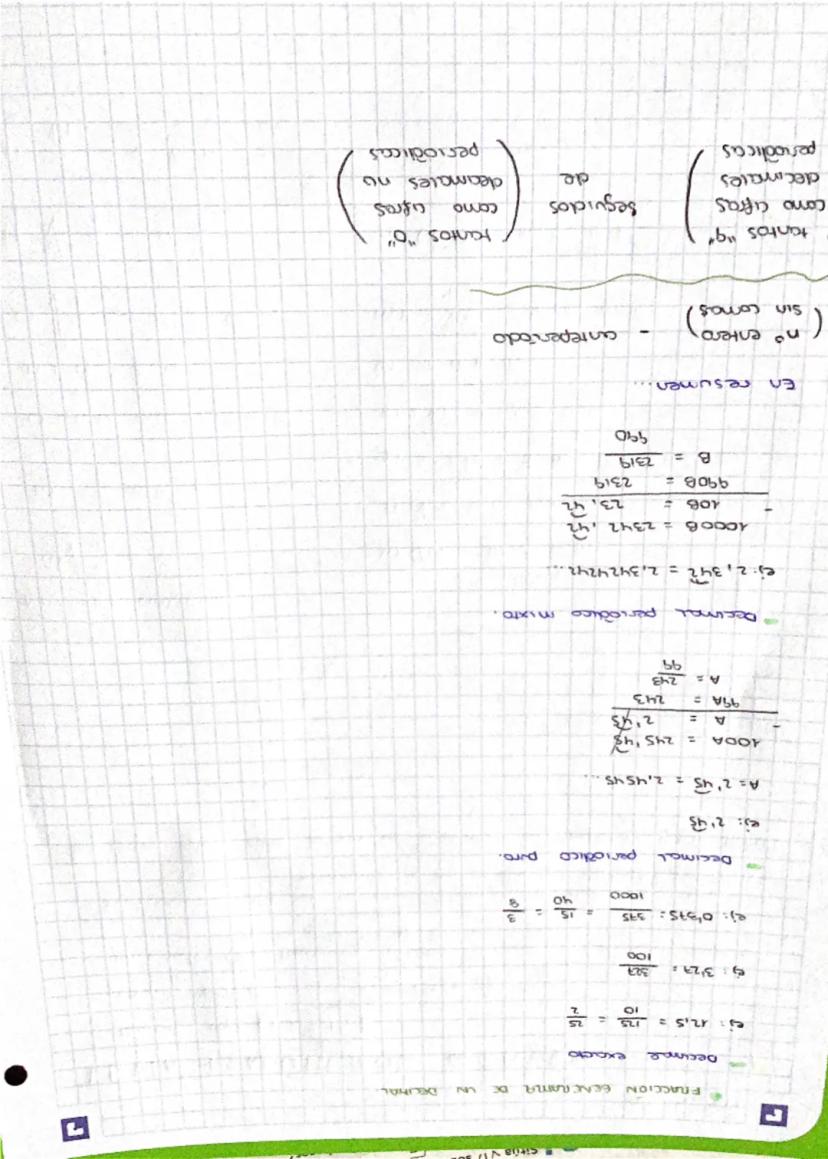 FRACCIÓN GENERATRIZ DE UN DECIMAL.
Decimal exacto
ej: 12,5 = 125/10 = 25/2
ej: 3'27 = 327/100
ej: 0'375 = 375/1000 = 15/40 = 3/8
Decimal periódico puro.
ej: 2'45
A = 2'45 = 2,4545...
100A = 245'45
- A = 2'45
99A = 243
A = 243/99
Decimal periódico mixto.
ej: 2,342 = 2,3424242...
1000B = 2342,42
- 10B = 23,42
990B = 2319
B = 2319/990
En resumen...
(nº entero sin comas) - anteperíodo
(tantos "9" como cifras decimales periódicas) seguidos de (tantos "0" como cifras decimales no periódicas)